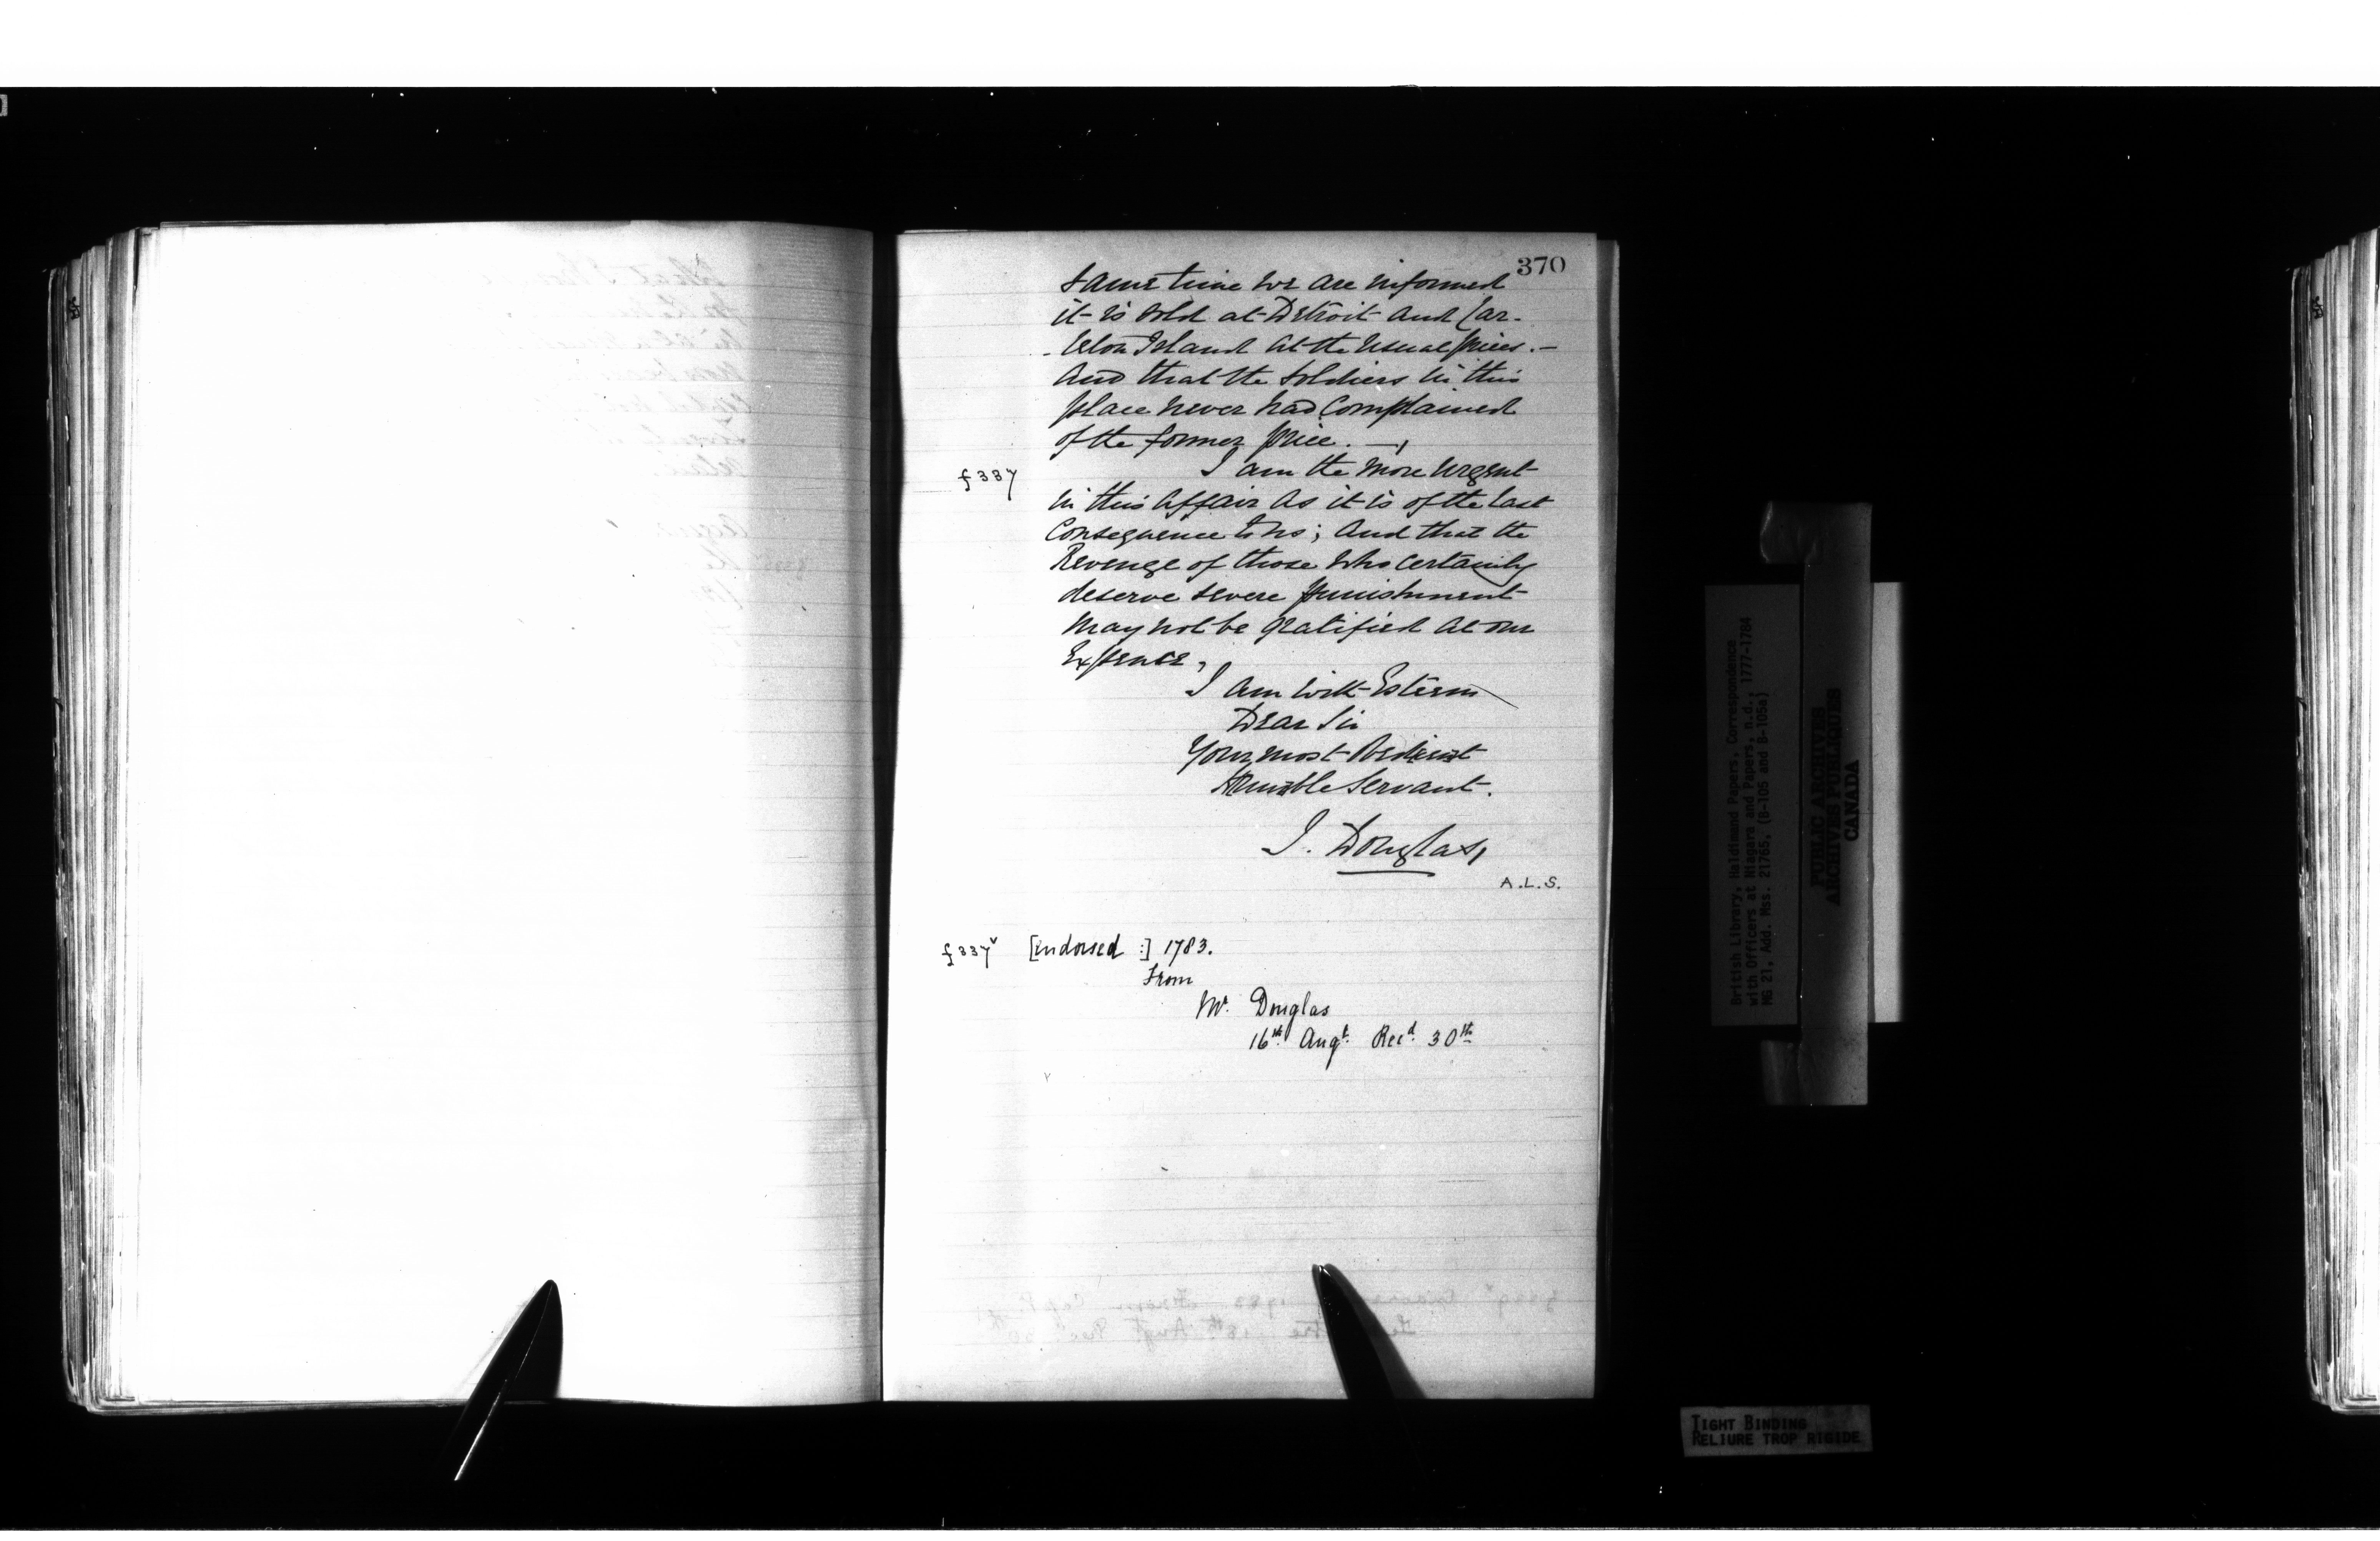 370
same time we are informed
it is sold at Detroit and Car-
-leton Island at the usual prices.-
And that the Soldiers in this
place never had Complained
of the former price. —
f 337
I am the more urgent
in this affair as it is of the last
Consequence to us; And that the
Revenge of those who certainly
deserve severe punishment
may not be gratified at our
Expence,
I am with Esteem
Dear Sir
Your most Obedient
Humble Servant.
J. Douglas,
A.L.S.
f 337v [indorsed :] 1783.
From
Mr. Douglas
16th Augt. Recd. 30th
British Library, Haldimand Papers, Correspondence
with Officers at Niagara and Papers, n.d., 1777-1784
MG 21, Add. Mss. 21765, (B-105 and B-105a)
PUBLIC ARCHIVES
ARCHIVES PUBLIQUES
CANADA
TIGHT BINDING
RELIURE TROP RIGIDE